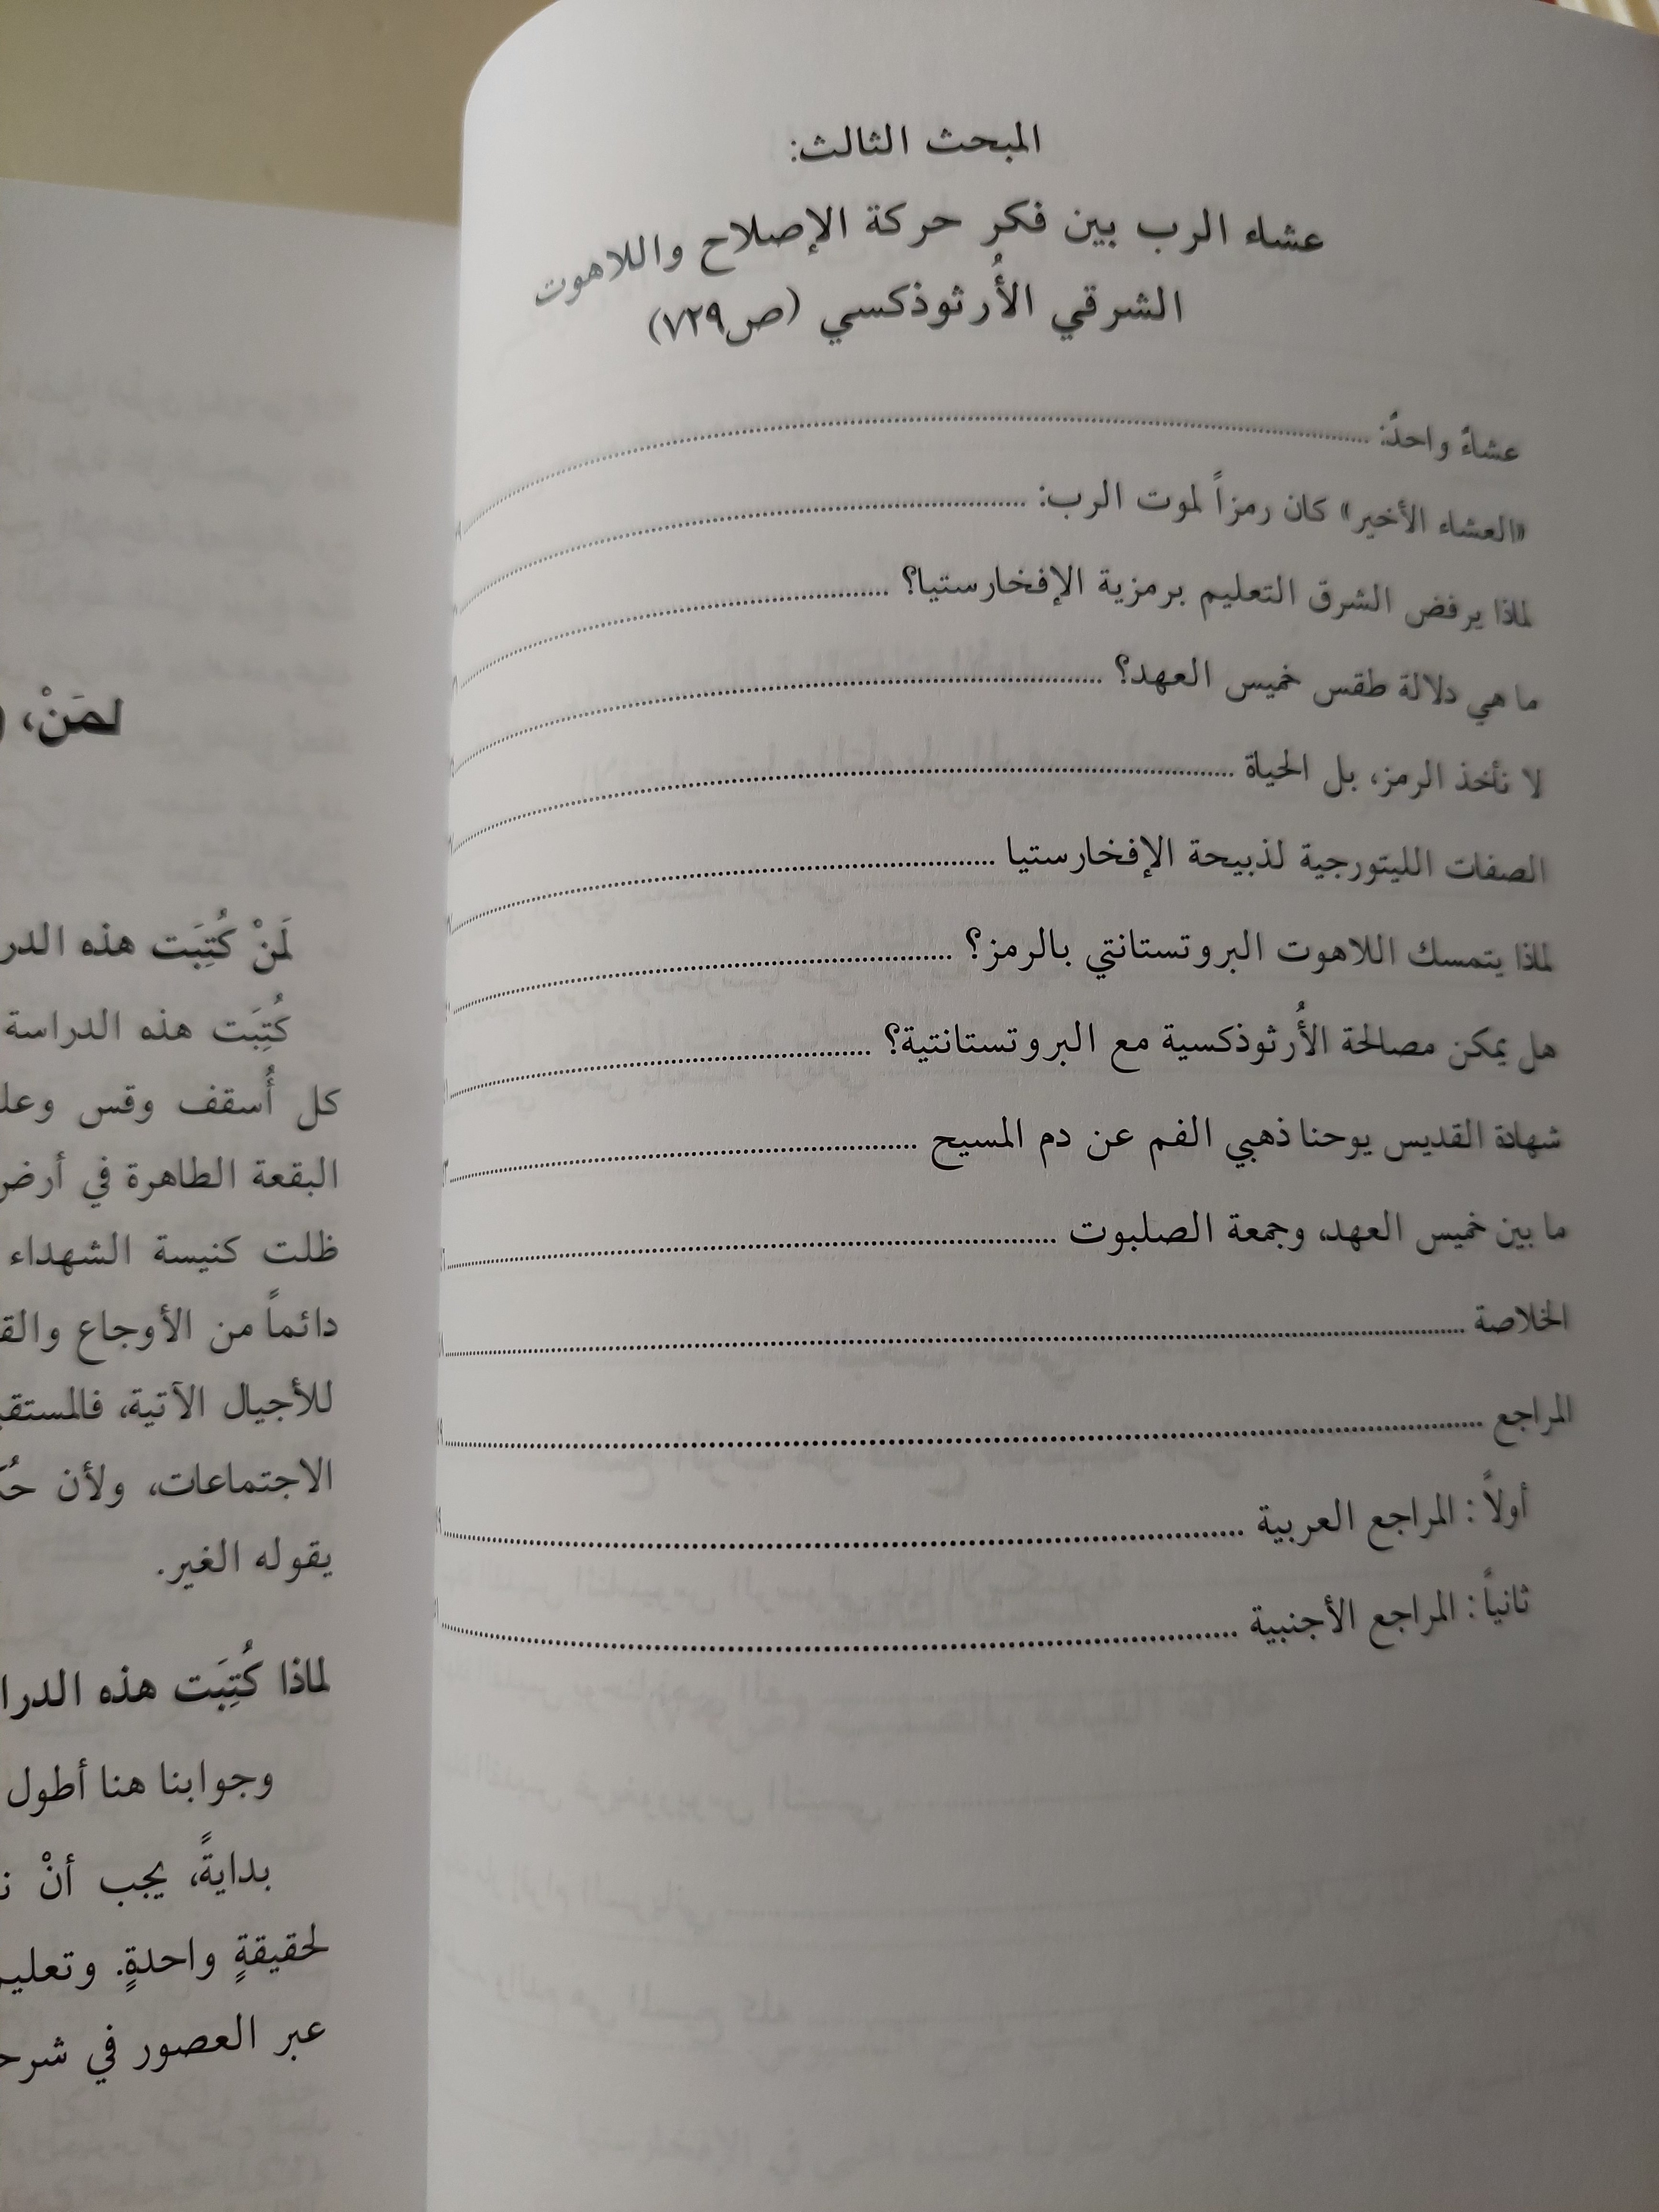 المبحث الثالث:
عشاء الرب بين فكر حركة الإصلاح واللاهوت
الشرقي الأُرثوذكسي (ص٧٢٩)
عشاءٌ واحدٌ:
«العشاء الأخير» كان رمزاً لموت الرب:
لماذا يرفض الشرق التعليم برمزية الإفخارستيا؟
ما هي دلالة طقس خميس العهد؟
لا نأخذ الرمز، بل الحياة
الصفات الليتورجية لذبيحة الإفخارستيا
لماذا يتمسك اللاهوت البروتستانتي بالرمز؟
هل يمكن مصالحة الأُرثوذكسية مع البروتستانتية؟
شهادة القديس يوحنا ذهبي الفم عن دم المسيح
ما بين خميس العهد، وجمعة الصلبوت
الخلاصة
المراجع
أولاً: المراجع العربية
ثانياً: المراجع الأجنبية
لمَنْ،
لَمنْ كُتِبَت هذه
كُتِبَت هذه الدراسة
كل أُسقف وقس
البقعة الطاهرة في
ظلت كنيسة الشهداء
دائماً من الأوجاع
للأجيال الآتية،
الاجتماعات، ولأن
يقوله الغير.
لماذا كُتِبَت هذه
وجوابنا هنا أطول
بدايةً، يجب أنْ
لحقيقةٍ واحدةٍ.
عبر العصور في